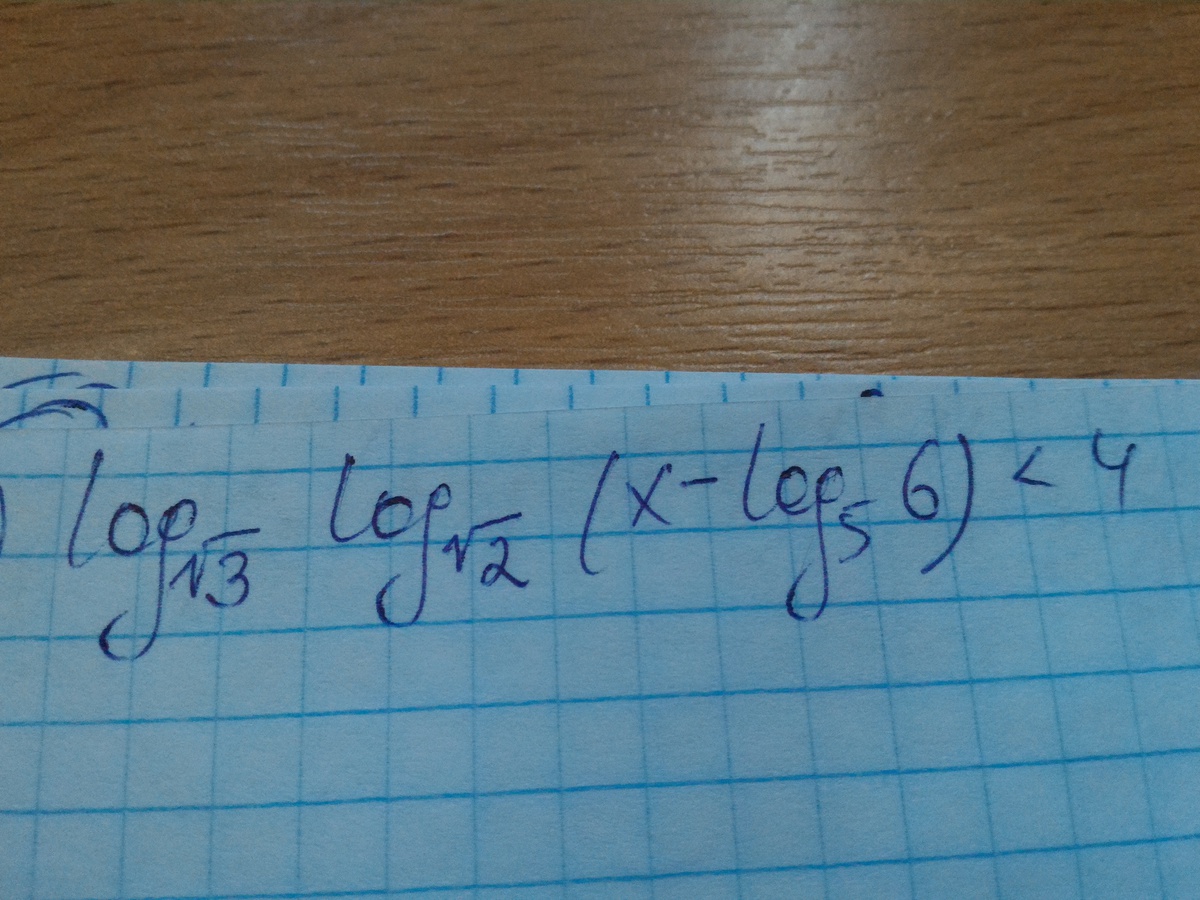 ) log_√3 log_√2 (x - log_5 6) < 4